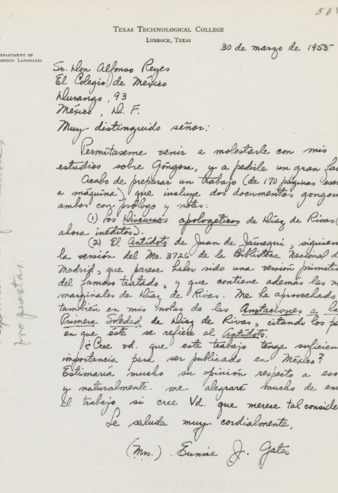 TEXAS TECHNOLOGICAL COLLEGE
LUBBOCK, TEXAS
DEPARTMENT OF
FOREIGN LANGUAGES
30 de marzo de 1955
Sr. Don Alfonso Reyes
El Colegio de México
Durango, 93
México, D. F.
Muy distinguido señor:
Permítaseme venir a molestarle con mis
estudios sobre Góngora, y a pedirle un gran
Acabo de preparar un trabajo (de 170 páginas
a máquina) que incluye dos documentos
ambos con prólogo y notas:
(1) los Discursos apologéticos de Díaz de Rivas
ahora inéditos).
(2) El Antídoto de Juan de Jáuregui,
la versión del Ms. 3726 de la Biblioteca Nacional
Madrid, que parece haber sido una versión
del famoso tratado, y que contiene además las
marginales de Díaz de Rivas. Me he aprovechado
también en mis notas de las Anotaciones a la
Primera Soledad de Díaz de Rivas, citando los
en que éste se refiere al Antídoto.
¿Cree vd. que este trabajo tenga
importancia para ser publicado en México?
Estimaría mucho su opinión respecto a
y naturalmente me alegraré mucho de
el trabajo si cree Vd. que merece tal
Le saluda muy cordialmente,
(Mrs.) Eunice J. Gates